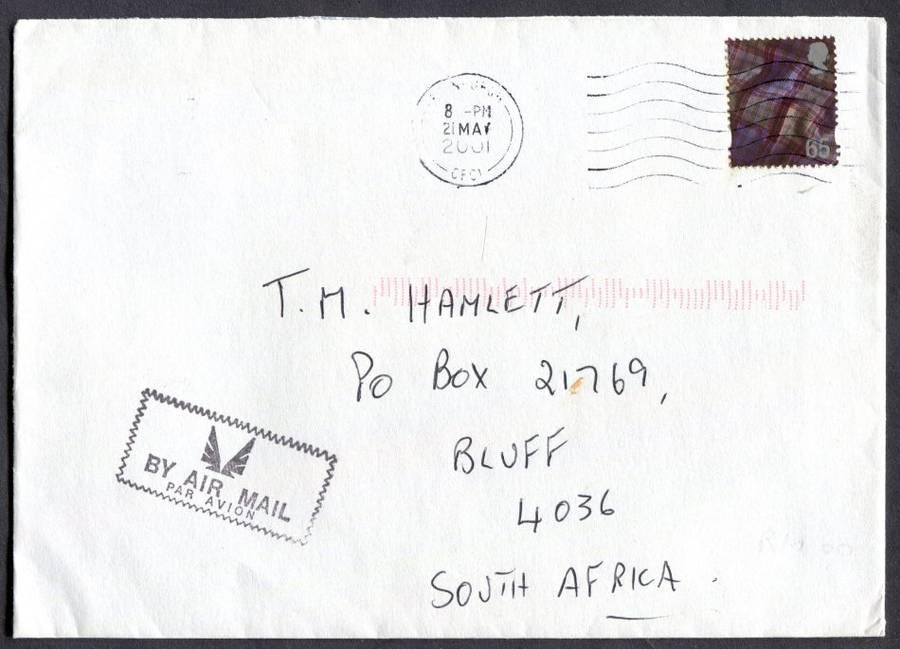 8 -PM
21 MAY
2001
65
T. M. HAMLETT,
PO BOX 21769,
BLUFF
4036
SOUTH AFRICA .
BY AIR MAIL
PAR AVION